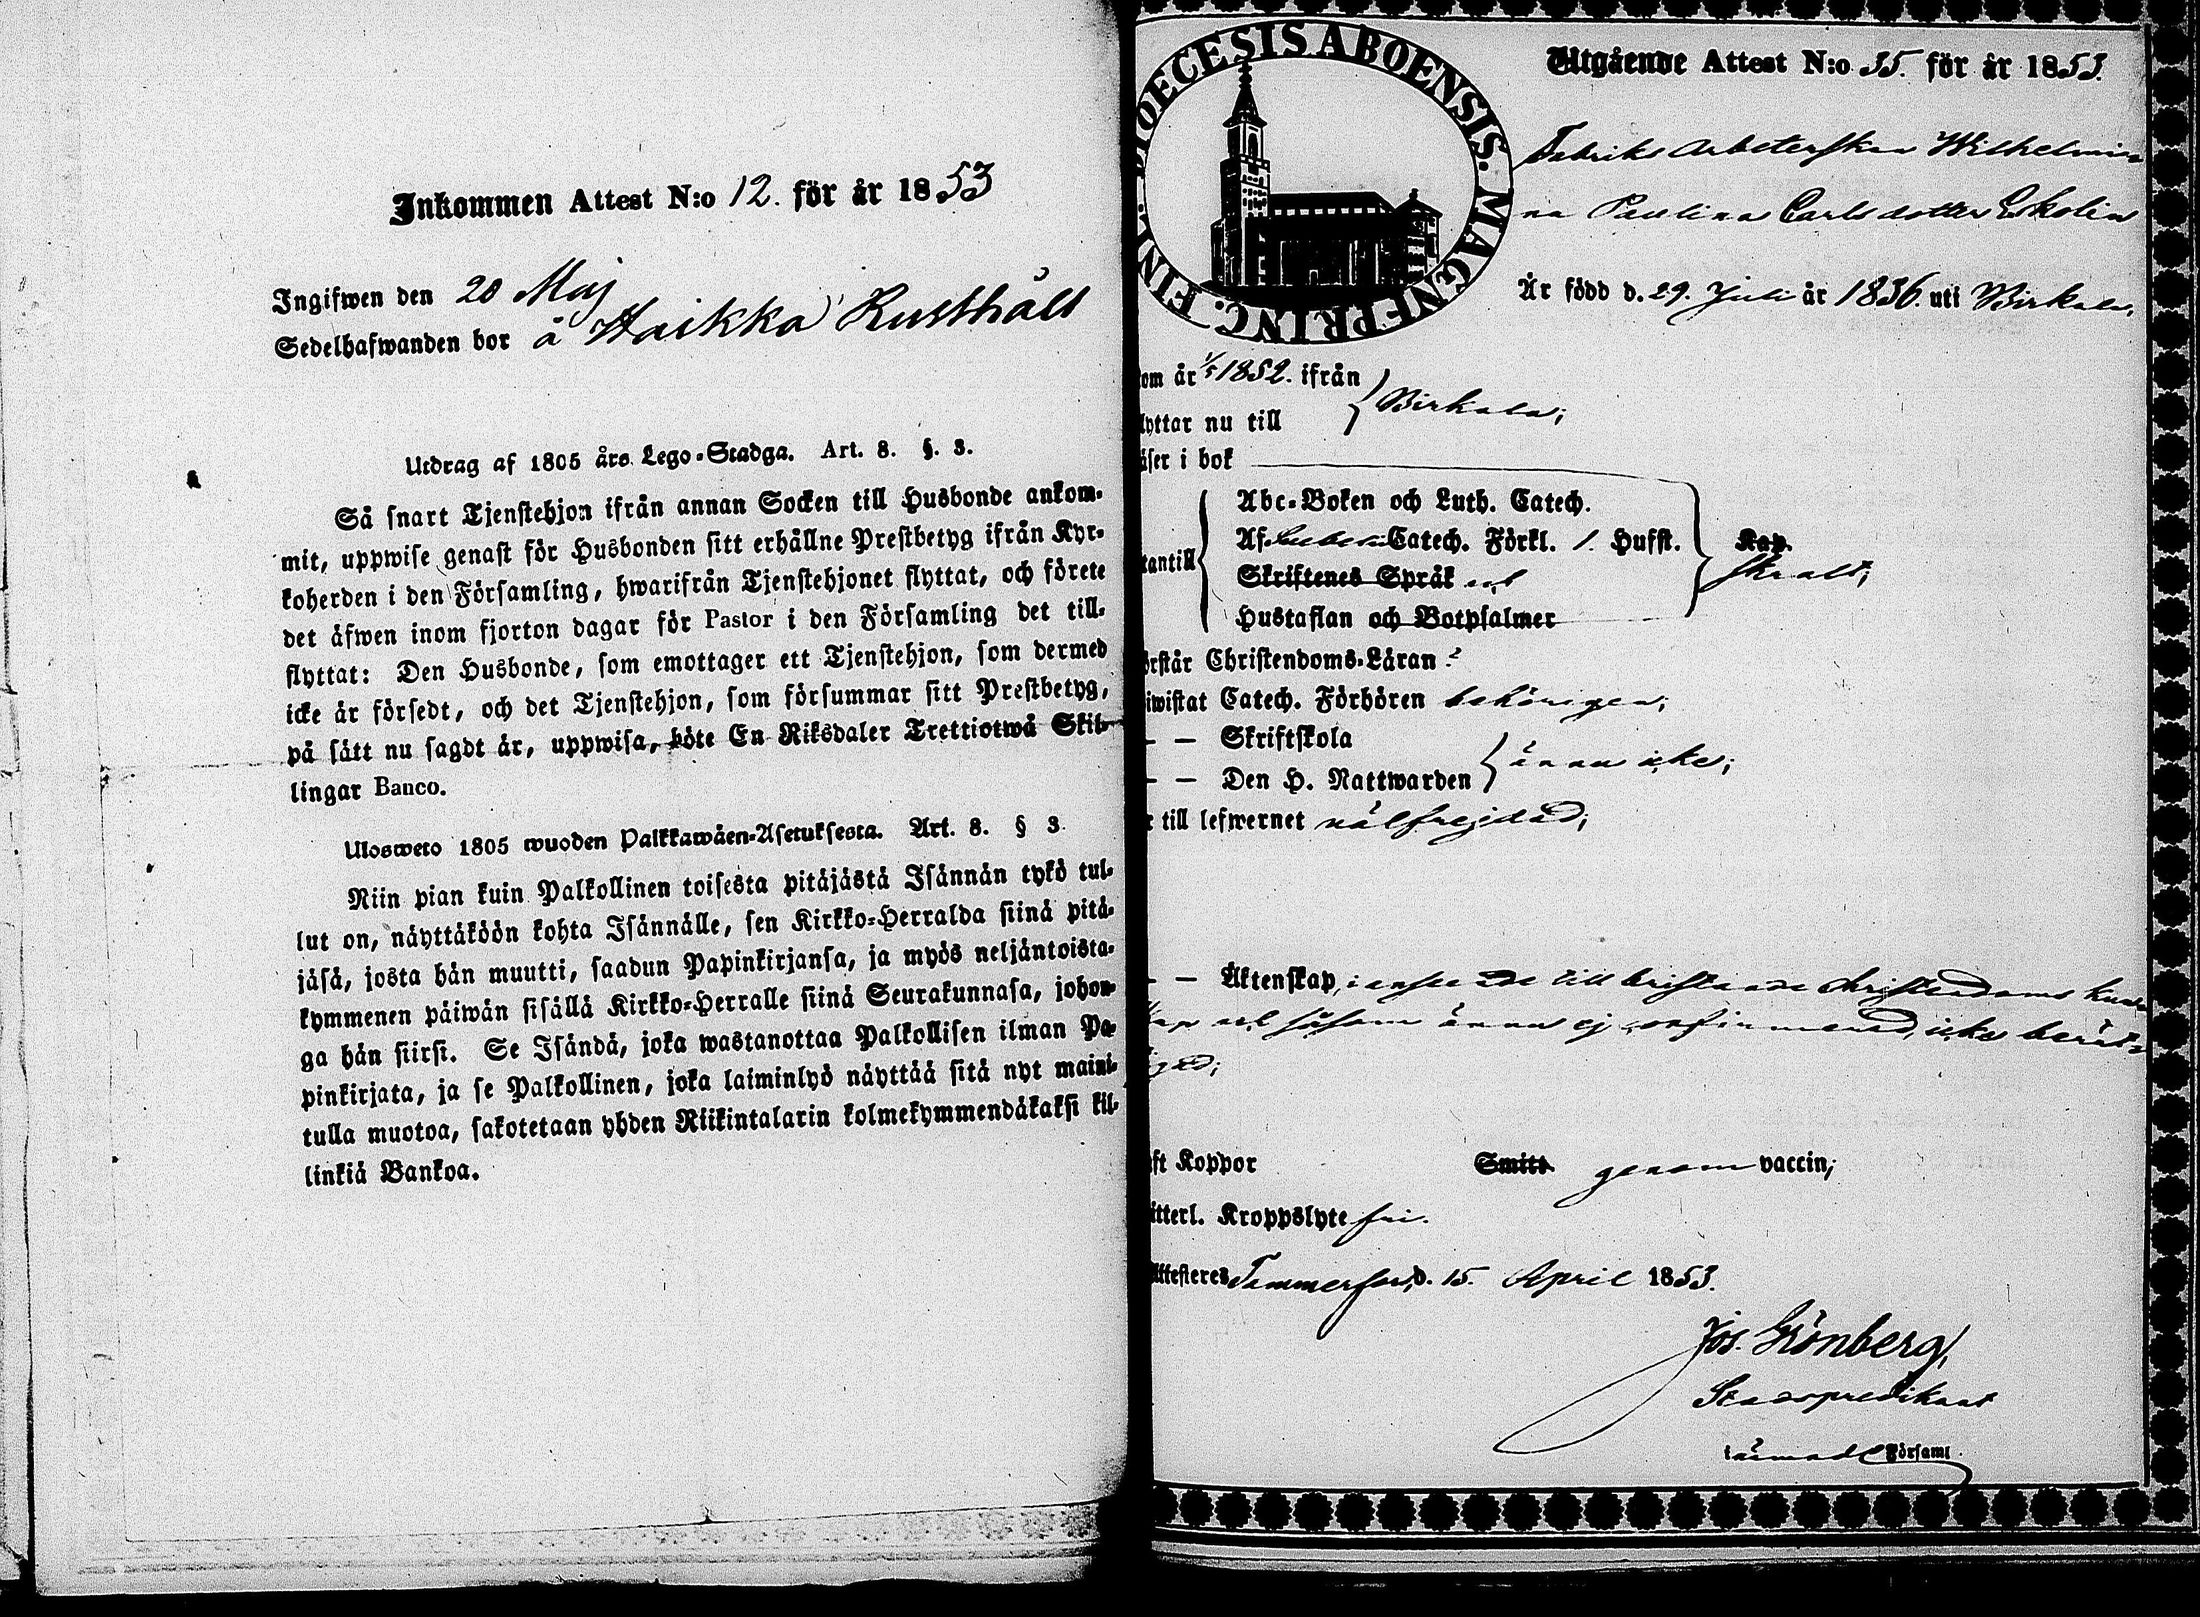 Inkommen Attest N:o 12. för år 1853
Ingifwen den 20 Maj
Sedelhafwanden bor å Haikka Rusthåll
Utdrag af 1805 års Lego-Stadga. Art. 8. §. 3.
Så snart Tjenstehjon ifrån annan Socken till Husbonde ankom-
mit, uppwise genast för Husbonden sitt erhållne Prestbetyg ifrån Kyr-
koherden i den Församling, hwarifrån Tjenstehjonet flyttat, och förete
det äfwen inom fjorton dagar för Pastor i den Församling det till-
flyttat: Den Husbonde, som emottager ett Tjenstehjon, som dermed
icke är försedt, och det Tjenstehjon, som försummar sitt Prestbetyg,
på sätt nu sagdt är, uppwisa, böte En Riksdaler Trettiotwå Skil-
lingar Banco.
Ulosweto 1805 wuoden Palkkawäen-Asetuksesta. Art. 8. § 3.
Niin pian kuin Palkollinen toisesta pitäjästä Isännän tykö tul-
lut on, näyttäköön kohta Isännälle, sen Kirkko-Herralda siinä pitä-
jäsä, josta hän muutti, saadun Papinkirjansa, ja myös neljäntoista-
kymmenen päiwän sisällä Kirkko-Herralle siinä Seurakunnasa, johon-
ga hän siirsi. Se Isändä, joka wastanottaa Palkollisen ilman Pa-
pinkirjata, ja se Palkollinen, joka laiminlyö näyttää sitä nyt maini-
tulla muotoa, sakotetaan yhden Riikintalarin kolmekymmendäkaksi kil-
linkiä Bankoa.
DIOECESIS ABOENSIS. MAGNI PRINC. FINL.
Utgående Attest N:o 35. för år 1853.
Fabriks Arbeterskan Wilhelmi-
na Paulina Carlsdotter Ekolin
Är född d. 29. Juli år 1836. uti Birkala,
om år 1/5 1852. ifrån
lyttar nu till Birkala;
äser i bok
Abc-Boken och Luth. Catech.
Af Catech. Förkl. 1. Hufst.
antill Skriftenes Språk och
Hustaflan och Botpsalmer
Kap.
skralt;
örstår Christendoms-Läran
iwistat Catech. Förhören behörigen;
— — Skriftskola
— — Den H. Nattwarden ännu icke;
r till lefwernet välfrejdad;
— — Äktenskap, i anseende till bristande Christendoms kun-
skap och såsom ännu ej confirmerad, icke berät-
tigad;
ft Koppor Smitt genom vaccin;
itterl. Kroppslyte fri.
Attesteres Tammerfors, d. 15. April 1853.
Jos. Grönberg,
Stadspredikant
Församl.